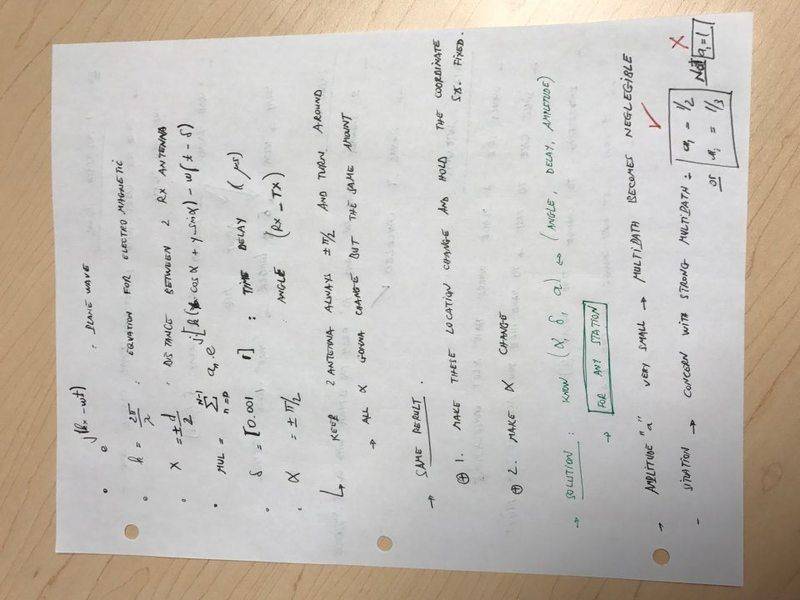 • e^j(kx - wt) : PLANE WAVE
• k = 2π/λ : EQUATION FOR ELECTRO MAGNETIC
• X = ± d/2 : DISTANCE BETWEEN 2 RX ANTENNA
• MUL = Σ_{n=0}^{N-1} a_n . e^j[k(x cos α + y sin α) - w(t - δ)]
• δ = [0.001 1] : TIME DELAY (μs)
• α = ± π/2 : ANGLE (RX - TX)
↳ KEEP 2 ANTENNA ALWAYS ± π/2 AND TURN AROUND
→ ALL α GONNA CHANGE BUT THE SAME AMOUNT
→ SAME RESULT.
⊕ 1. MAKE THESE LOCATION CHANGE AND HOLD THE COORDINATE
SYS. FIXED.
⊕ 2. MAKE α CHANGE
→ SOLUTION : KNOW (α, δ, a) ↔ (ANGLE, DELAY, AMPLITUDE)
→ FOR ANY STATION
→ AMPLITUDE "a" VERY SMALL → MULTIPATH BECOMES NEGLEGIBLE ✓
- SITUATION → CONCERN WITH STRONG MULTIPATH = a_1 = 1/2 Not a_1 = 1 X
or a_1 = 1/3